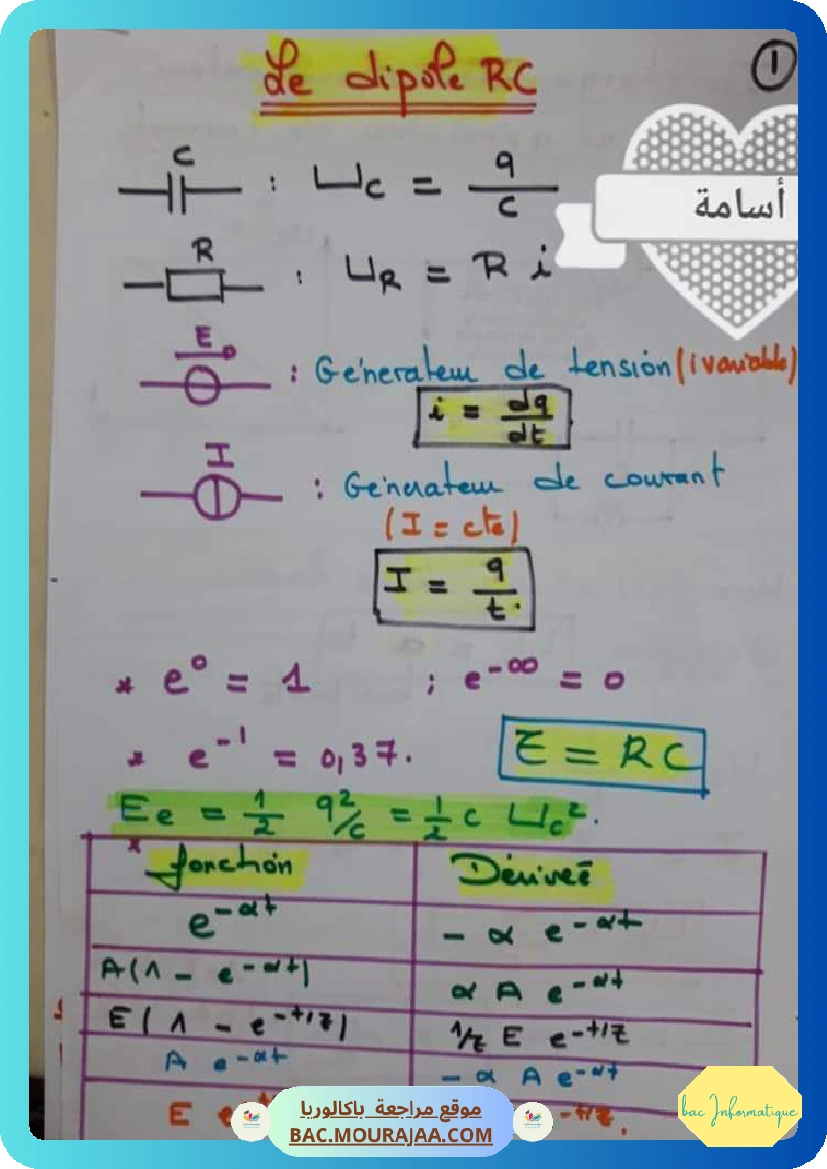 Le dipôle RC
1
أسامة
C : Uc = q/c
R : UR = R i
E : Générateur de tension (i variable)
i = dq/dt
I : Générateur de courant
(I = cte)
I = q/t
* e⁰ = 1 ; e^-∞ = 0
* e^-1 = 0,37.
τ = RC
Ee = 1/2 q²/c = 1/2 c Uc².
* fonction | Dérivée
e^-αt | - α e^-αt
A(1 - e^-αt) | α A e^-αt
E(1 - e^-t/τ) | 1/τ E e^-t/τ
A e^-αt | - α A e^-αt
E e | -t/τ.
موقع مراجعة باكالوريا
BAC.MOURAJAA.COM
bac Informatique